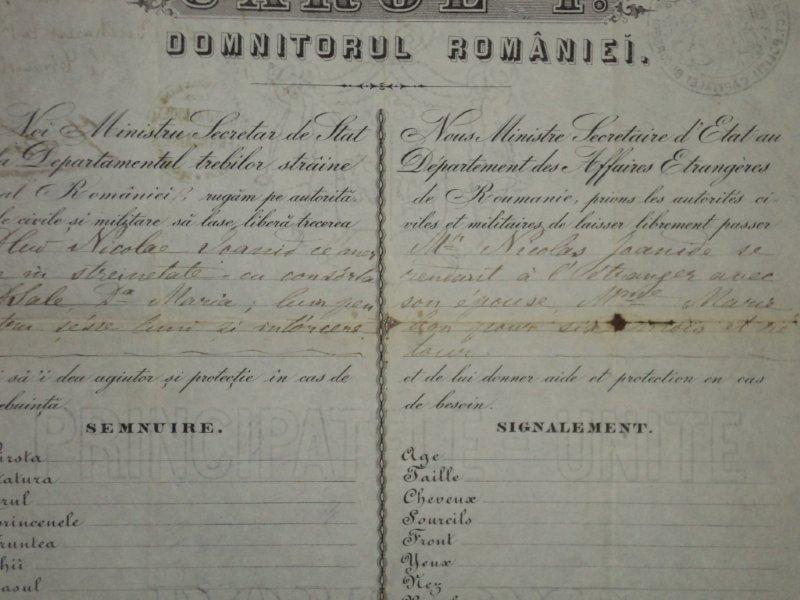 CAROL I.
DOMNITORUL ROMÂNIEĬ.
Noi Ministru Secretar de Stat
la Departamentul trebilor străine
al României, rugăm pe autorită
le civile și militare să lase liberă trecerea
Nicolae Joanid ce mer
în streinetate cu consórta
Sale Da Maria; bun pen
tru șésse luni și intórcere
i să'i dea agiutor și protecție în cas de
rebuință
SEMNUIRE.
ârsta
tatura
rul
princenele
runtea
hiĭ
asul
Nous Ministre Secrétaire d'Etat au
Département des Affaires Etrangères
de Roumanie, prions les autorités ci
viles et militaires de laisser librement passer
Mr. Nicolas Joanide se
rendant à l'étranger avec
son épouse, Mme Marie
bon pour six mois et re
tour.
et de lui donner aide et protection en cas
de besoin.
SIGNALEMENT.
Age
Taille
Cheveux
Sourcils
Front
Yeux
Nez
PRINCIPATELE UNITE